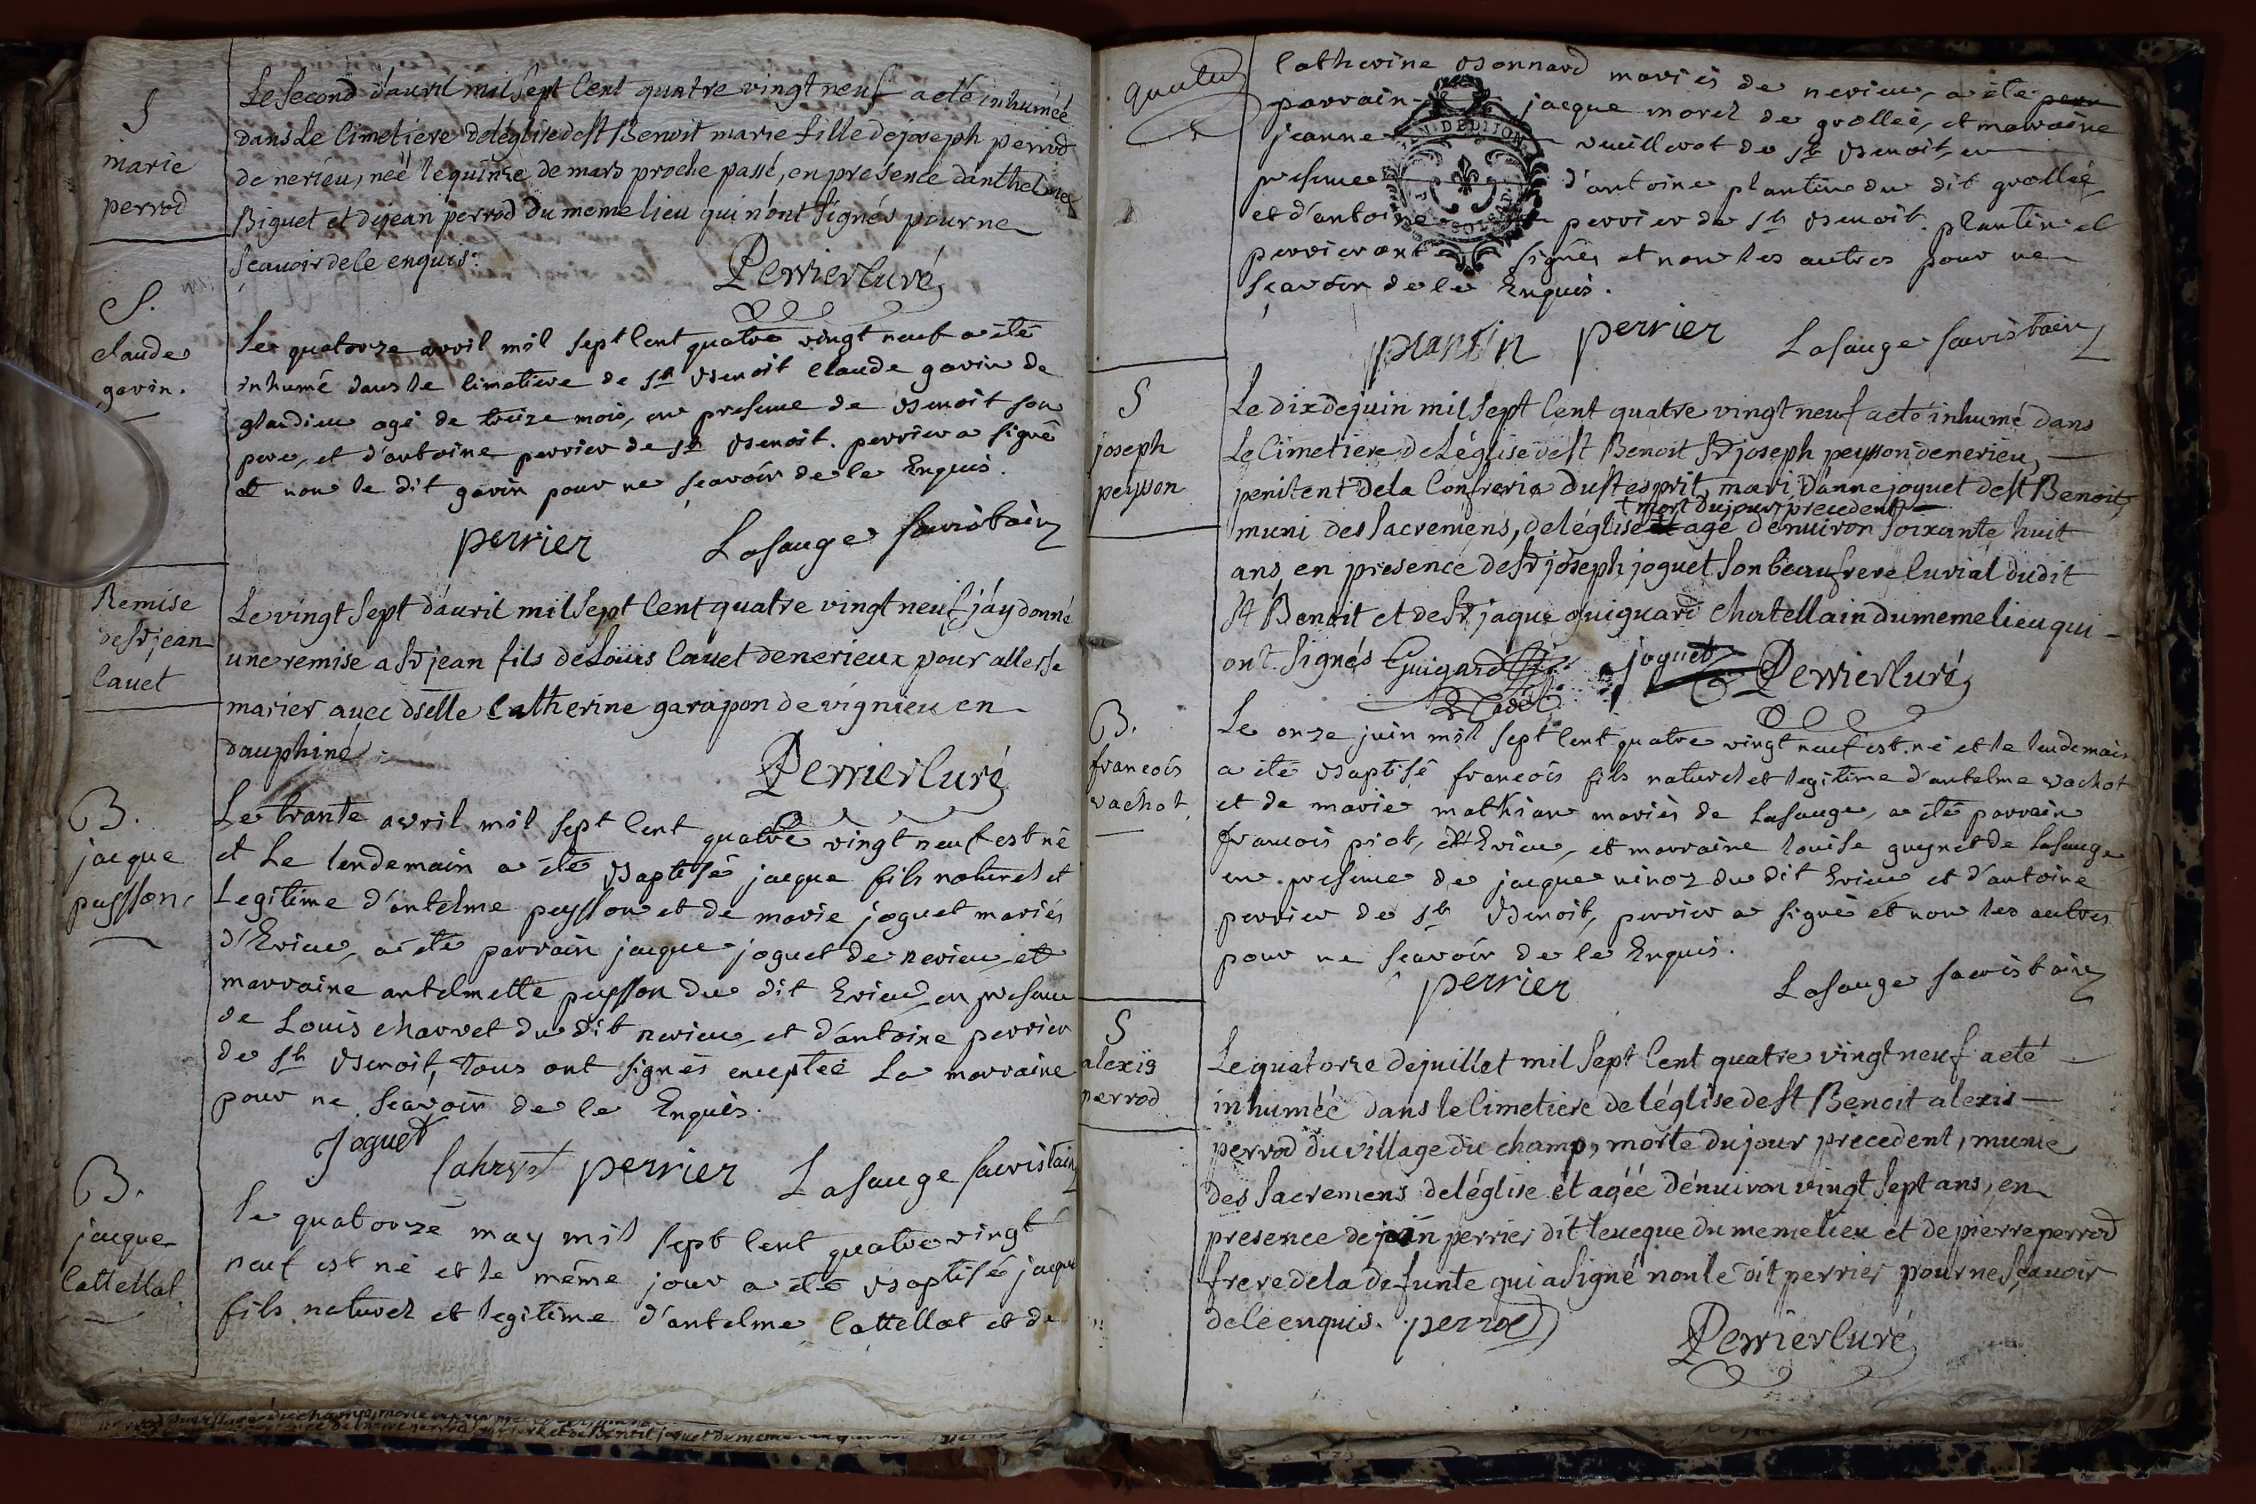 S
marie
perrod
Le second d'auril mil sept Cent quatre vingt neuf a eté inhumée
dans Le Cimetiere de léglise de St Benoit marie fille de joseph perrod
de nerieu, néé le quinze de mars proche passé, en présence d'anthelme
Biguet et de jean perrod du meme lieu qui n'ont signés pour ne
sçauoir de ce enquis.
Perrier Curé
S.
claude
gavin.
Le quatorze avril mil sept Cent quatre vingt neuf a été
inhumé dans le Cimetiere de st Benoit Claude gavin de
glandieu agé de treize mois, en presence de Benoit son
pere, et d'antoine perrier de st Benoit. perrier a signé
et non le dit gavin pour ne sçavoir de ce Enquis.
perrier Lasauge sacristain
Remise
de sr jean
Cauet
Le vingt sept d'auril mil sept Cent quatre vingt neuf j'ay donné
une remise a sr jean fils de Louis Cauet de nerieux pour aller se
marier auec dselle Catherine garapon de vignieu en
dauphiné
Perrier Curé
B.
jacque
peysson,
Le trante avril mil sept Cent quatre vingt neuf est né
et Le lendemain a été Baptisé jacque fils naturel et
Legitime d'antelme peysson et de marie joguet mariés
d'Evieu, a été parrain jacque joguet de nerieu et
marraine antelmette peysson du dit Evieu, en presence
de Louis charvet du dit nerieu et d'antoine perrier
de st Benoit, tous ont signés exceptée La marraine
pour ne sçavoir de ce Enquis.
Joguet perrier Lasauge sacristain
B.
jacque
Cattellat
Le quatorze may mil sept Cent quatre vingt
neuf est né et le même jour a été Baptisé jacque
fils naturel et legitime d'antelme Cattellat et de
Catherine Bonnard mariés de nerieu, a été
parrain jacque morel de groslée, et marraine
jeanne veuillerot de st Benoit, en
presence d'antoine plantin du dit groslée
et d'antoine perrier de st Benoit. plantin et
perrier ont signés et non les autres pour ne
sçavoir de ce Enquis.
plantin perrier Lasauge sacristain
S
joseph
peysson
Le dix de juin mil sept Cent quatre vingt neuf a eté inhumé dans
Le Cimetiere de Léglise de St Benoit Sr joseph peysson de nerieu,
penitent de la Confrerie du st esprit, mari d'anne joguet de St Benoit,
mort du jour précedent
muni des sacremens, de léglise agé d'enuiron soixante huit
ans en presence de sr joseph joguet son beaufrere Curial du dit
St Benoit et de sr jaque guiguard Chatellain du meme lieu qui
ont signés Guigard joguet Perrier Curé
B.
francois
vachot
Le onze juin mil sept Cent quatre vingt neuf est né et le lendemain
a été Baptisé francois fils naturel et legitime d'antelme vachot
et de marie mathian mariés de Lasauge, a été parrain
francois piot, d'Evieu, et marraine louise guynet de Lasauge
en presence de jacque ninoz du dit Evieu et d'antoine
perrier de st Benoit, perrier a signé et non les autres
pour ne sçavoir de ce Enquis.
perrier Lasauge sacristain
S
alexis
perrod
Le quatorze de juillet mil sept Cent quatre vingt neuf a eté
inhuméé dans le Cimetiere de léglise de St Benoit alexis
perrod du village du champ, morte du jour precedent, munie
des sacremens de léglise et agéé d'enuiron vingt sept ans, en
presence de jean perrier dit leueque du meme lieu et de pierre perrod
frere de la defunte qui a signé non le dit perrier pour ne sçauoir
de ce enquis. perrod
Perrier Curé